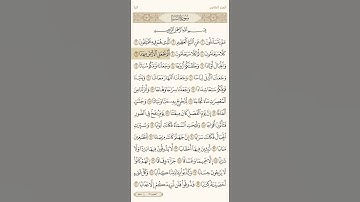 سُورَةُ النَّبَإِ
بِسْمِ اللَّهِ الرَّحْمَٰنِ الرَّحِيمِ
عَمَّ يَتَسَاءَلُونَ ١ عَنِ النَّبَإِ الْعَظِيمِ ٢ الَّذِي هُمْ فِيهِ مُخْتَلِفُونَ ٣
كَلَّا سَيَعْلَمُونَ ٤ ثُمَّ كَلَّا سَيَعْلَمُونَ ٥ أَلَمْ نَجْعَلِ الْأَرْضَ مِهَادًا ٦
وَالْجِبَالَ أَوْتَادًا ٧ وَخَلَقْنَاكُمْ أَزْوَاجًا ٨ وَجَعَلْنَا نَوْمَكُمْ سُبَاتًا ٩
وَجَعَلْنَا اللَّيْلَ لِبَاسًا ١٠ وَجَعَلْنَا النَّهَارَ مَعَاشًا ١١ وَبَنَيْنَا فَوْقَكُمْ
سَبْعًا شِدَادًا ١٢ وَجَعَلْنَا سِرَاجًا وَهَّاجًا ١٣ وَأَنْزَلْنَا مِنَ
الْمُعْصِرَاتِ مَاءً ثَجَّاجًا ١٤ لِنُخْرِجَ بِهِ حَبًّا وَنَبَاتًا ١٥ وَجَنَّاتٍ
أَلْفَافًا ١٦ إِنَّ يَوْمَ الْفَصْلِ كَانَ مِيقَاتًا ١٧ يَوْمَ يُنْفَخُ فِي الصُّورِ
فَتَأْتُونَ أَفْوَاجًا ١٨ وَفُتِحَتِ السَّمَاءُ فَكَانَتْ أَبْوَابًا ١٩ وَسُيِّرَتِ
الْجِبَالُ فَكَانَتْ سَرَابًا ٢٠ إِنَّ جَهَنَّمَ كَانَتْ مِرْصَادًا ٢١
لِلطَّاغِينَ مَآبًا ٢٢ لَابِثِينَ فِيهَا أَحْقَابًا ٢٣ لَا يَذُوقُونَ فِيهَا بَرْدًا وَلَا
شَرَابًا ٢٤ إِلَّا حَمِيمًا وَغَسَّاقًا ٢٥ جَزَاءً وِفَاقًا ٢٦ إِنَّهُمْ كَانُوا
لَا يَرْجُونَ حِسَابًا ٢٧ وَكَذَّبُوا بِآيَاتِنَا كِذَّابًا ٢٨ وَكُلَّ شَيْءٍ
أَحْصَيْنَاهُ كِتَابًا ٢٩ فَذُوقُوا فَلَنْ نَزِيدَكُمْ إِلَّا عَذَابًا ٣٠